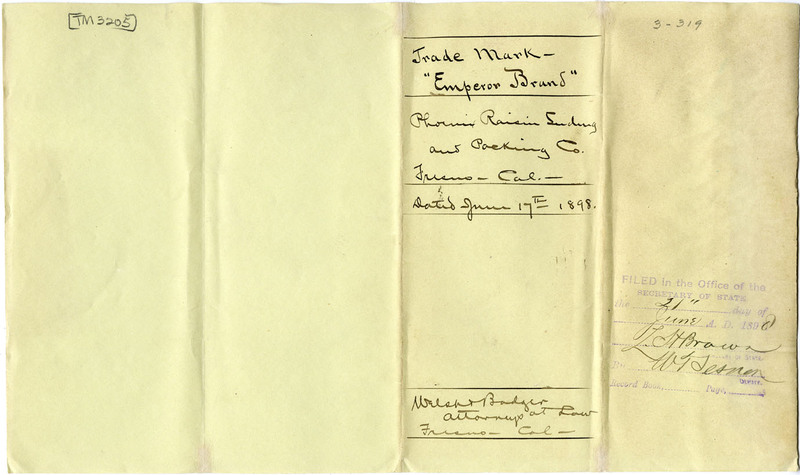 TM3205
3-319
Trade Mark -
"Emperor Brand"
Phoenix Raisin Seeding
and Packing Co.
Fresno - Cal. -
Dated June 17th 1898.
FILED in the Office of the
SECRETARY OF STATE
the 21" day of
June A. D. 1898
L. H. Brown
By
Deputy.
Record Book, Page,
Welsh & Badger
Attorneys at Law
Fresno - Cal -